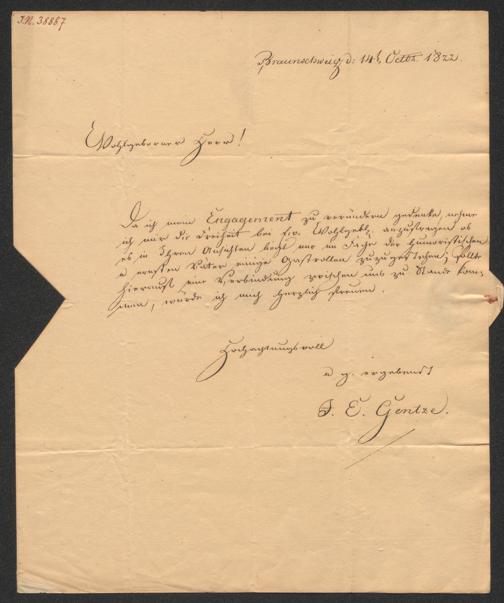 J.N. 38887
Braunschweig d: 14t Octbr. 1822.
Wohlgeborner Herr!
Da ich mein Engagement zu verändern gedenke, nehme
ich mir die Freiheit bei Ew. Wohlgebl. anzufragen ob
es in Ihren Ansichten liegt mir im Fache der humoristischen
u ernsten Väter einige Gastrollen zuzugestehen; sollte
hierauf eine Verbindung zwischen uns zu Stande kom-
men, würde ich mich herzlich freuen.
Hochachtungsvoll
ergebenst
J. E. Gentze.